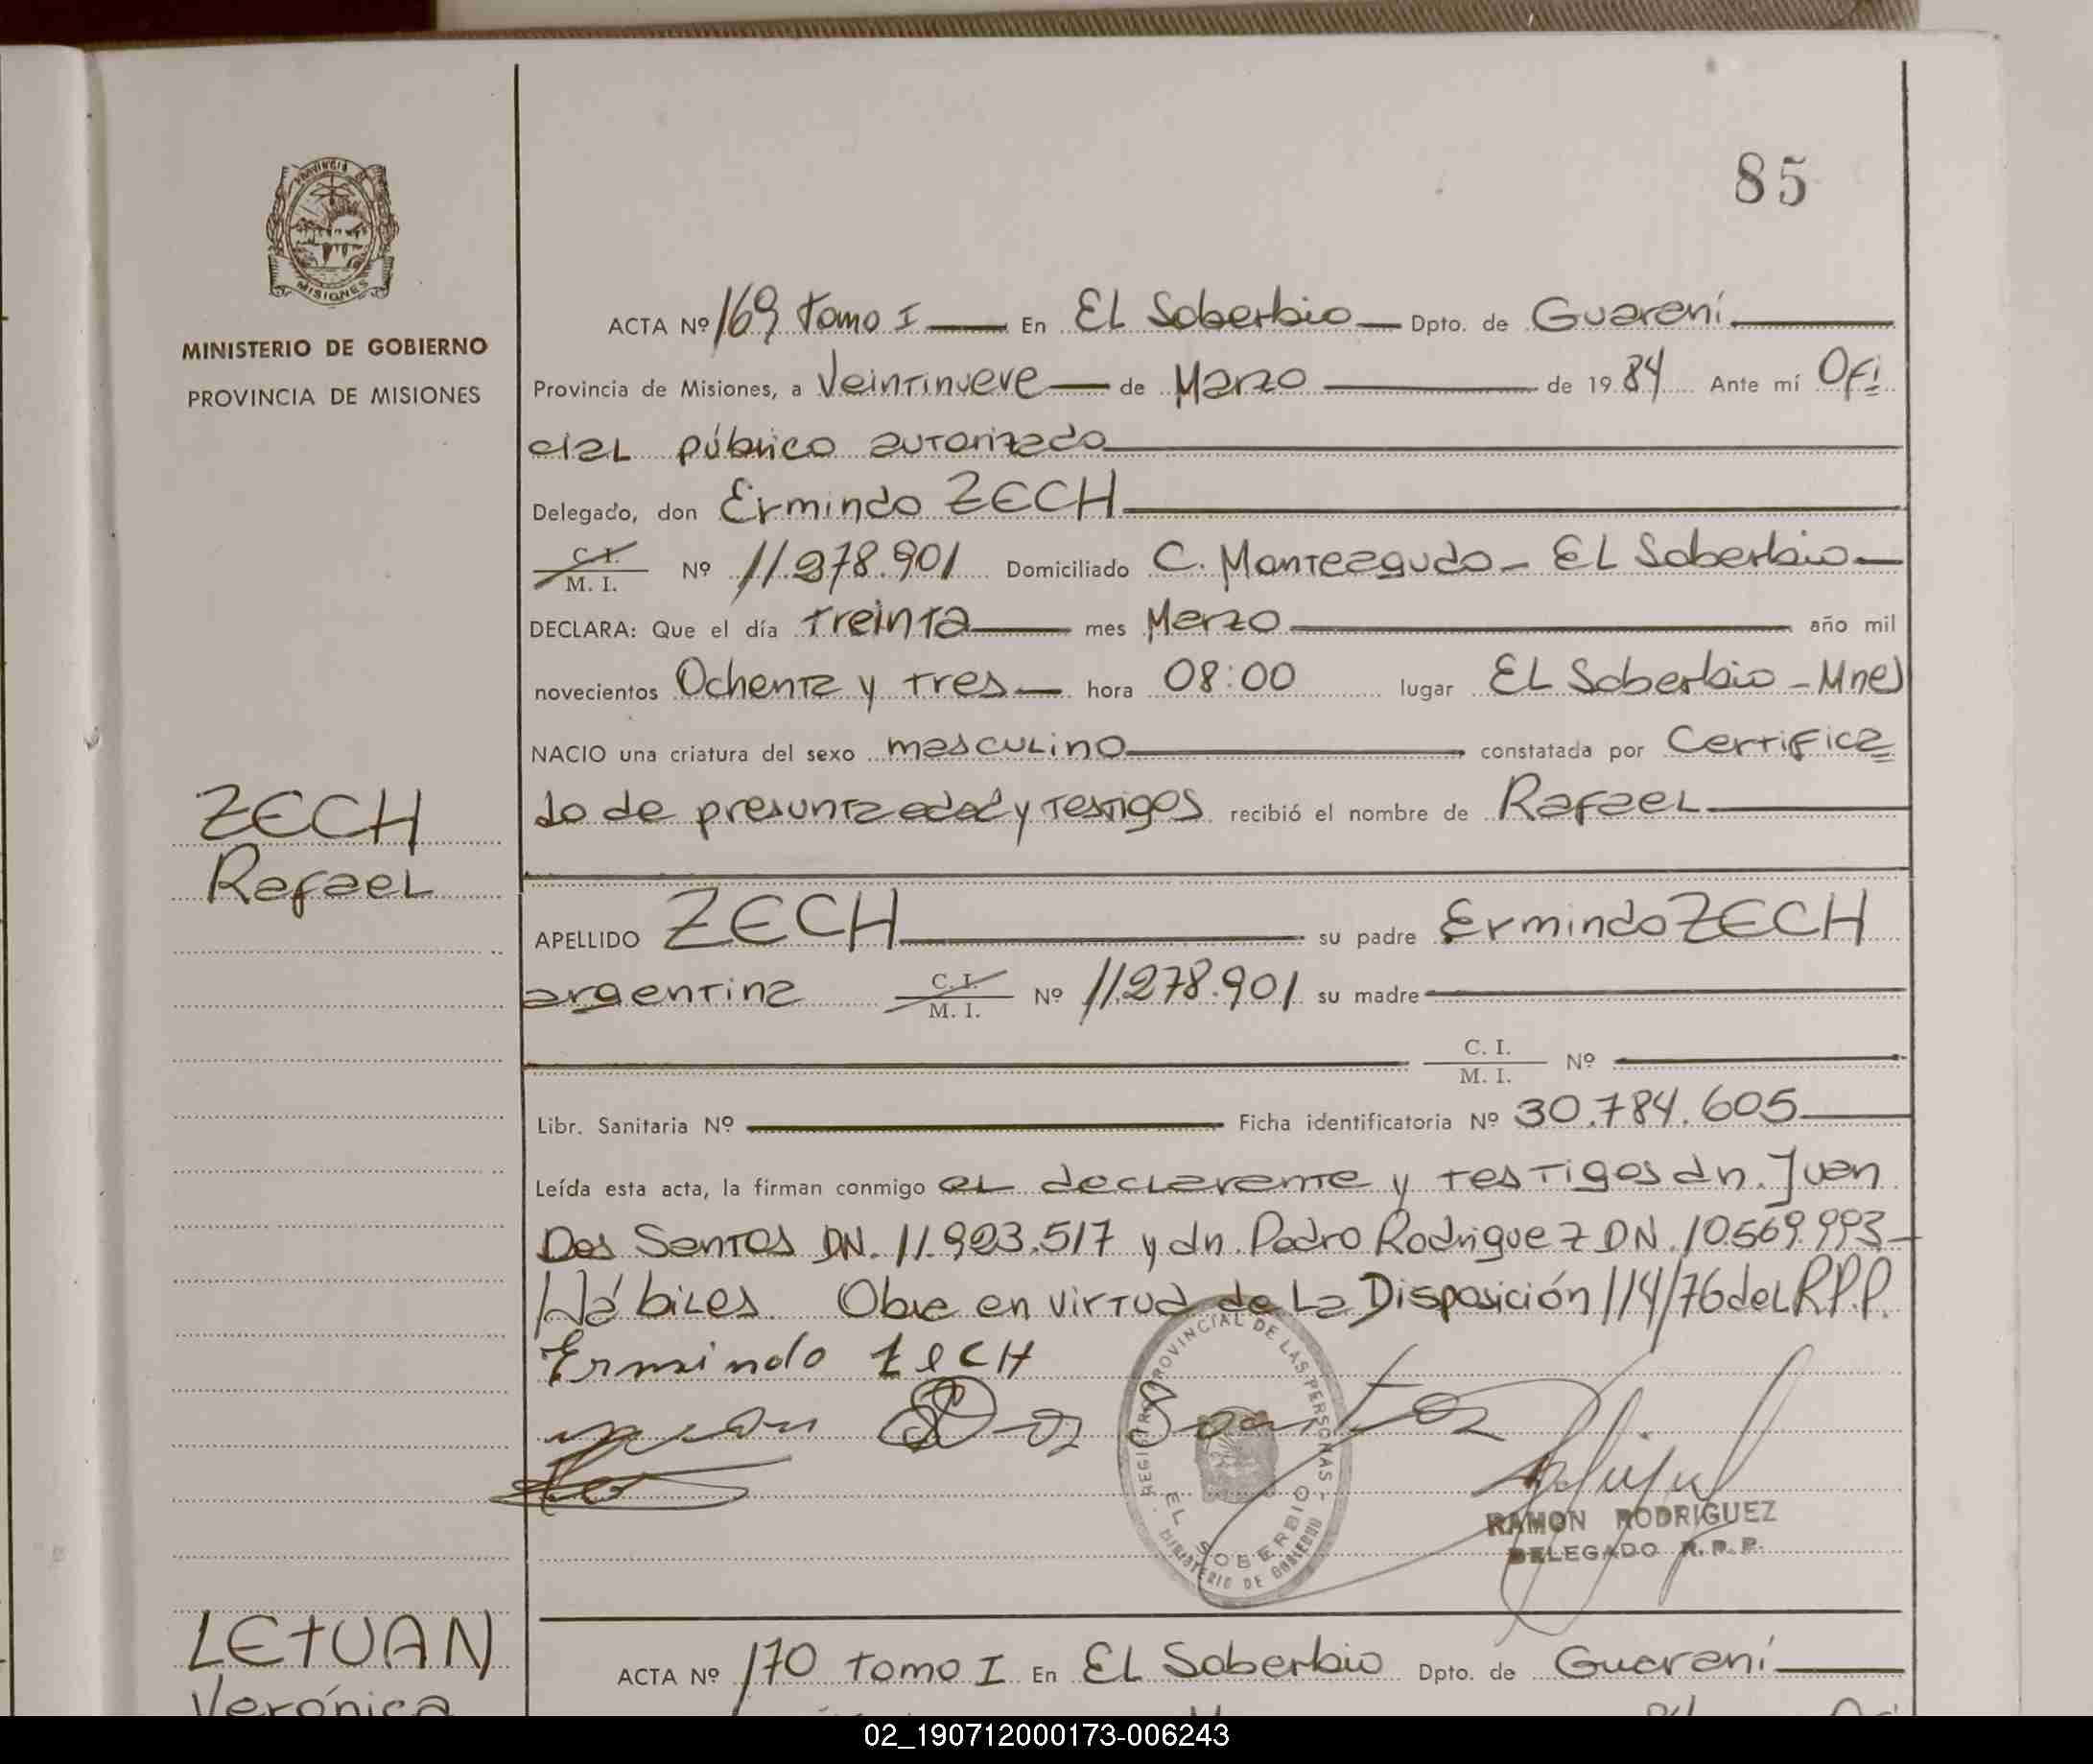 85
PROVINCIA
MISIONES
MINISTERIO DE GOBIERNO
PROVINCIA DE MISIONES
ACTA Nº 169 tomo I — En EL Soberbio — Dpto. de Guaraní
Provincia de Misiones, a Veintinueve — de Marzo — de 1984 Ante mí Ofi
cial público autorizado
Delegado, don Ermindo ZECH
C. I. / M. I. Nº 11.278.901 Domiciliado C. Monteagudo - EL Soberbio —
DECLARA: Que el día treinta — mes Marzo — año mil
novecientos Ochenta y tres — hora 08:00 lugar EL Soberbio - Mnes
NACIO una criatura del sexo masculino — constatada por Certifica
do de presunta edad y testigos recibió el nombre de Rafael
ZECH
Rafael
APELLIDO ZECH — su padre Ermindo ZECH
argentina C. I. / M. I. Nº 11.278.901 su madre —
C. I. / M. I. Nº —
Libr. Sanitaria Nº — Ficha identificatoria Nº 30.784.605
Leída esta acta, la firman conmigo el declarante y testigos dn. Juan
Dos Santos DN. 11.923.517 y dn. Pedro Rodriguez DN. 10.569.993 —
Hábiles. Obre en virtud de La Disposición 114/76 del R.P.P.
Ermindo ZECH
Juan Dos Santos
REGISTRO PROVINCIAL DE LAS PERSONAS - MINISTERIO DE GOBIERNO
EL SOBERBIO
RAMON RODRIGUEZ
DELEGADO R. P. P.
LETUAN
Verónica
ACTA Nº 170 tomo I En EL Soberbio Dpto. de Guaraní
02_190712000173-006243